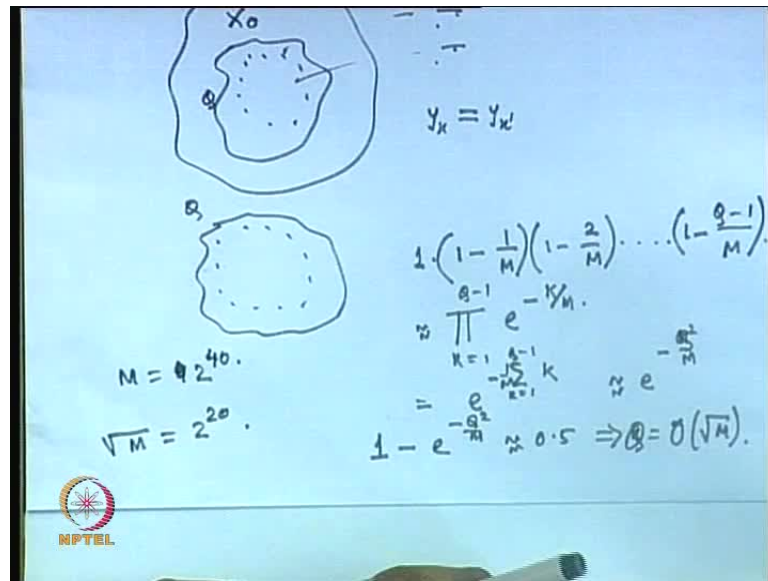 X0
Q
y_x = y_x'
Q
1·(1 - 1/M)(1 - 2/M)....(1 - Q-1/M).
≈ ∏_{K=1}^{Q-1} e^{-K/M}.
M = 2^{40}.
= e^{-1/M Σ_{K=1}^{Q-1} K} ≈ e^{-Q^2/M}
√M = 2^{20}.
1 - e^{-Q^2/M} ≈ 0.5 ⇒ Q = O(√M).
NPTEL